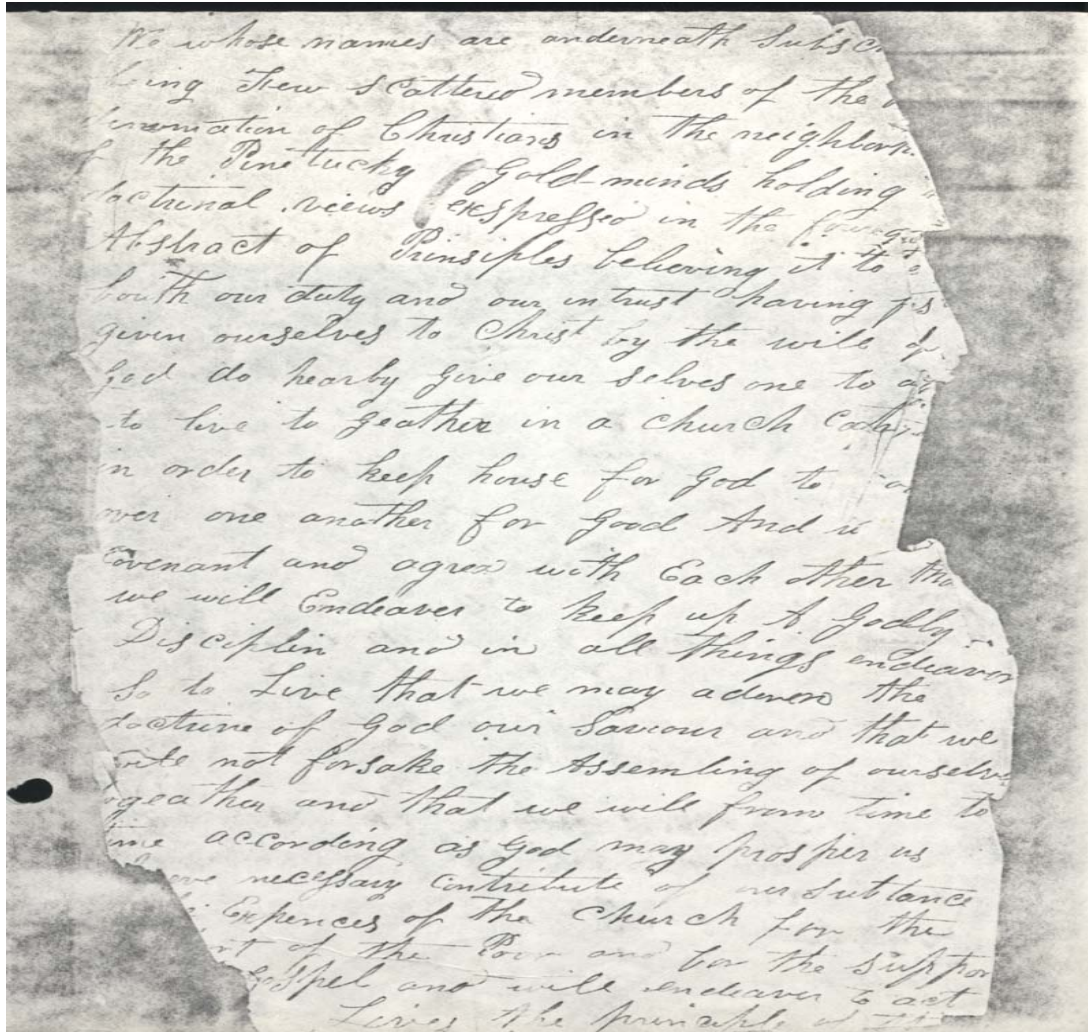 We whose names are underneath Subsc
being Few scattered members of the
nomination of Christians in the neighbor
the Pinetucky Gold-minds holding
doctrinal views expressed in the
Abstract of Prinsiples believing it to
bouth our duty and our intrust having
given ourselves to Christ by the will
God do hearby give our selves one to
to live to geather in a church
in order to keep house for God to
over one another for good And
Covenant and agree with Each other tha
we will Endeaver to keep up A Godly
Disciplin and in all things endeavor
So to Live that we may adorn the
doctrine of God our Saviour and that we
not forsake the Assembling of ourselve
ogeather and that we will from time to
time according as God may prosper us
necessary contribute of our substance
Expences of the Church for the
rt of the Poor and for the suppor
ospel and will endeaver to act
Lives the principle of